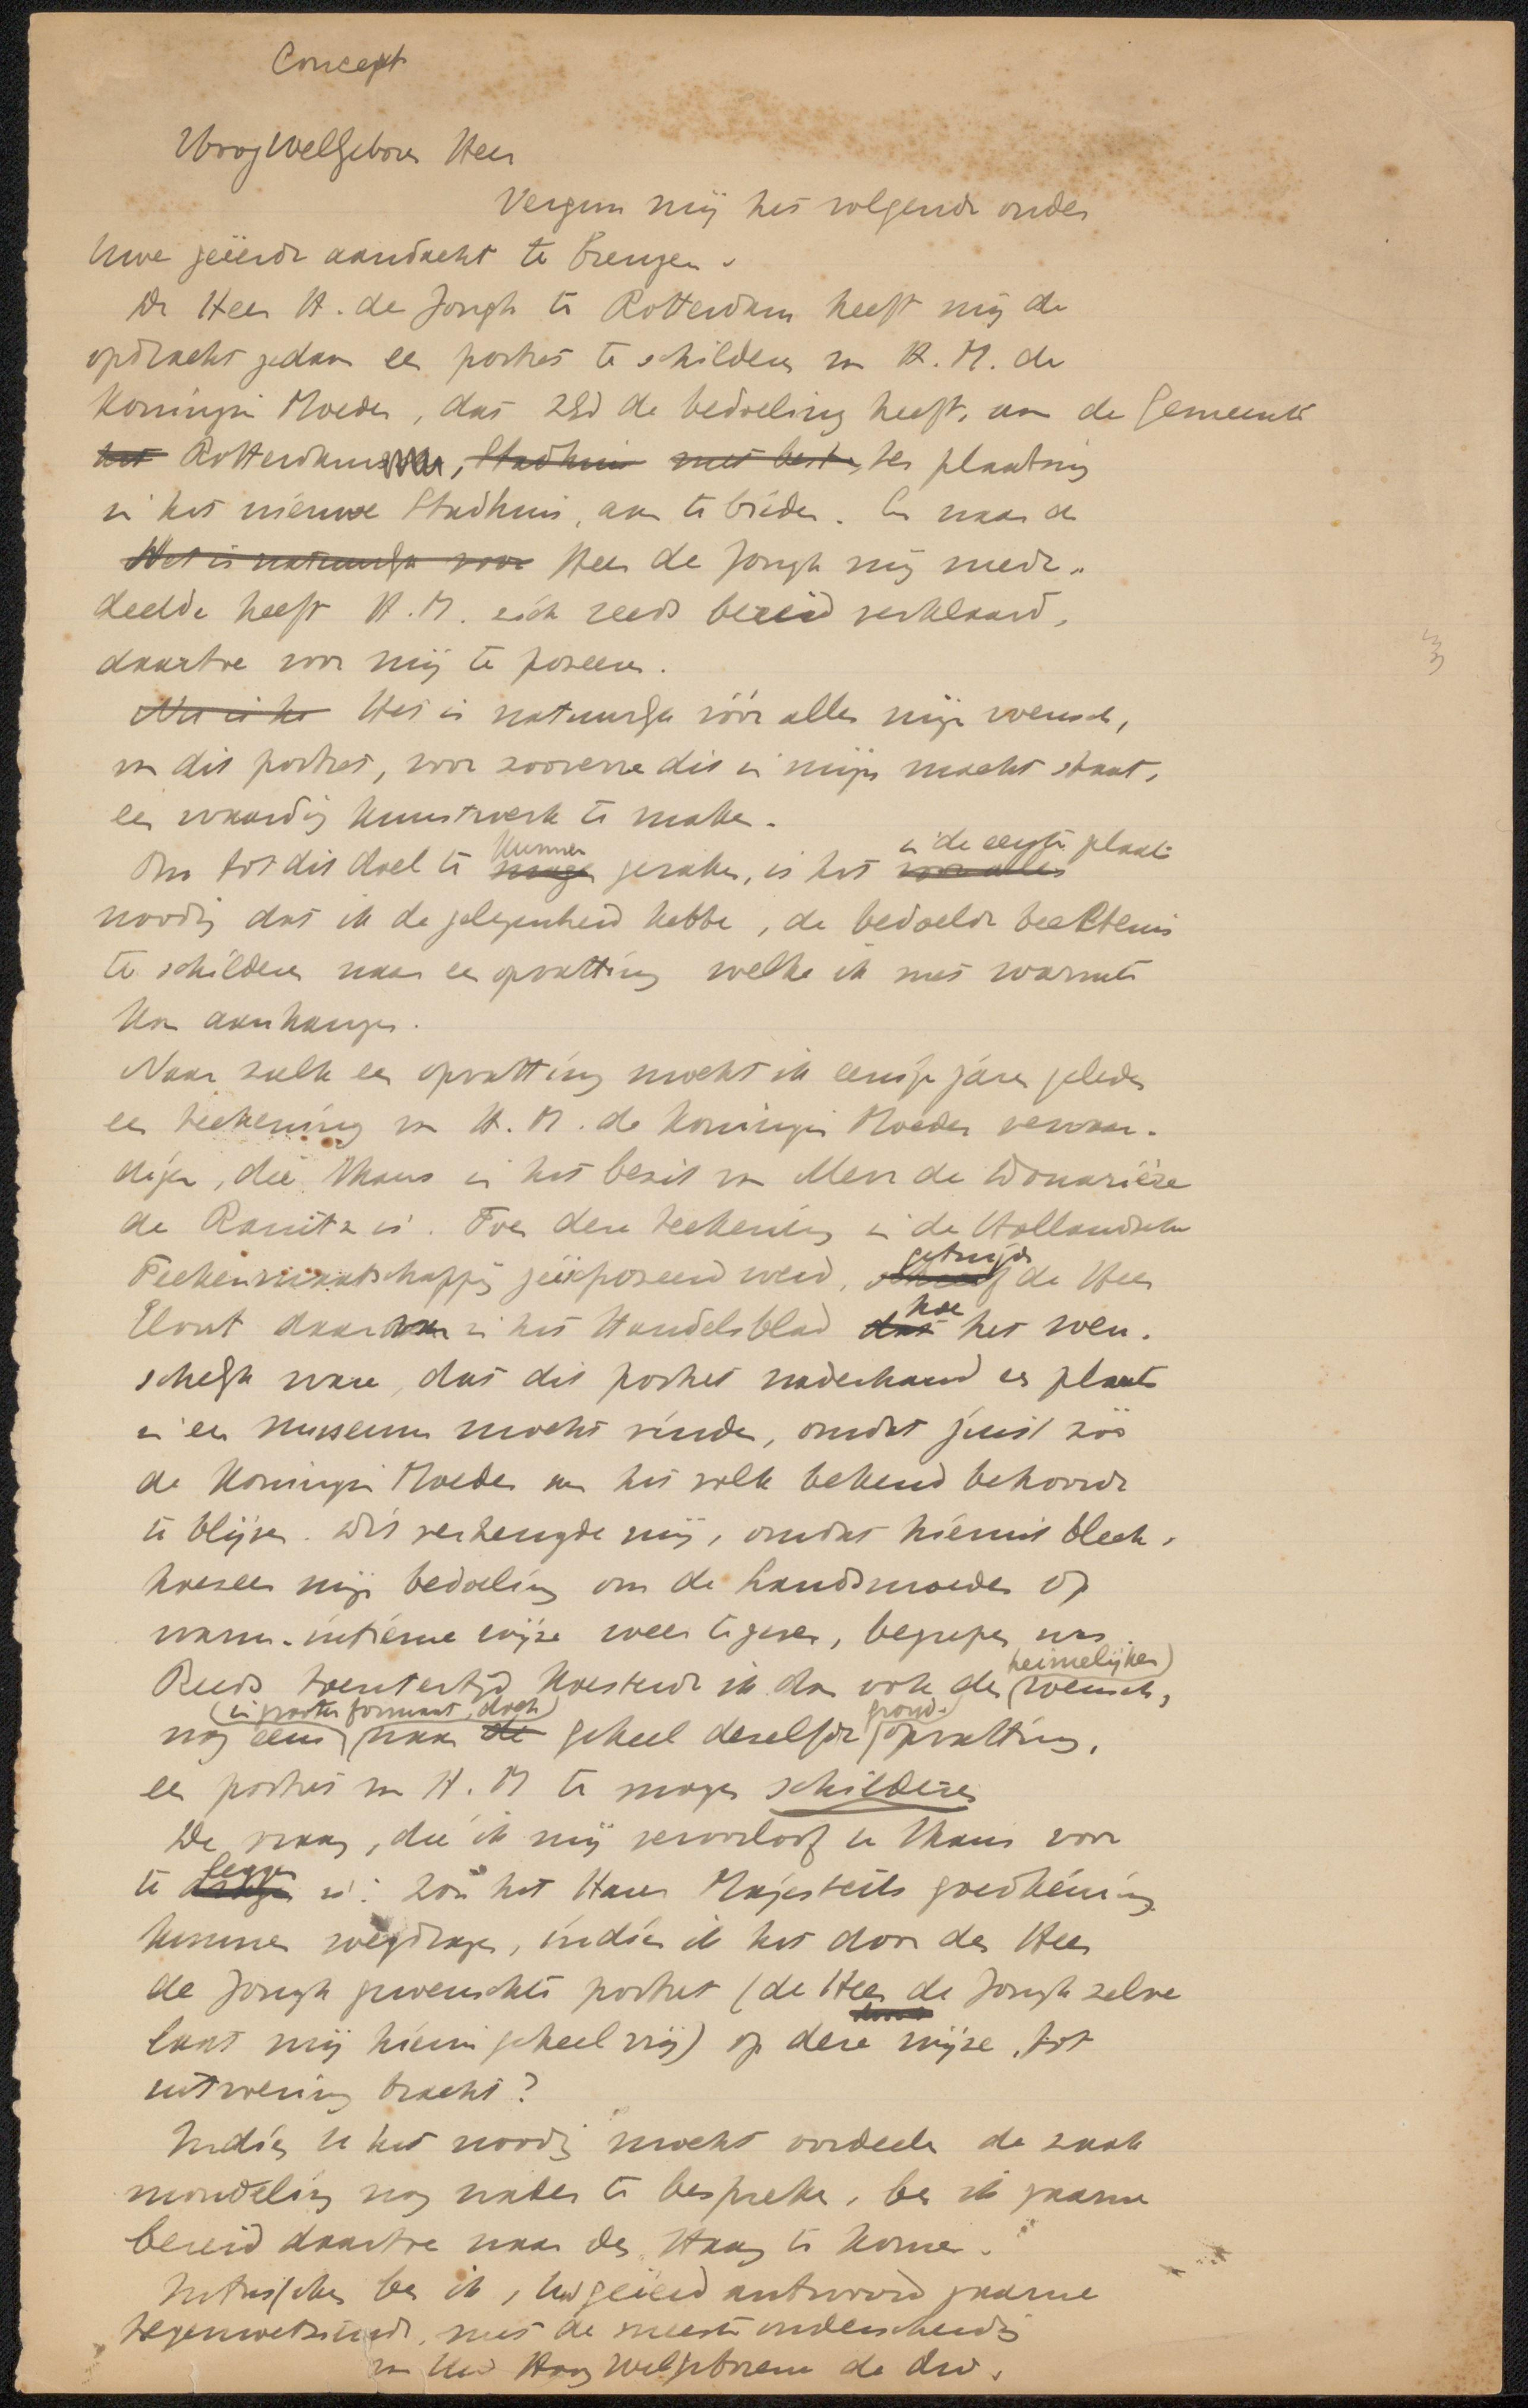 Concept
HoogWelGeboren Heer
Vergun mij het volgende onder
Uwe geëerde aandacht te brengen.
De Heer H. de Jongh te Rotterdam heeft mij de
opdracht gedaan een portret te schilderen van H. M. de
Koningin Moeder, dat ZEd de bedoeling heeft, aan de Gemeente
het Rotterdam, Stadhuis met ter plaatsing
in het nieuwe Stadhuis, aan te bieden. En naar de
Het is natuurlijk voor Heer de Jongh mij mede-
deelde heeft H. M. zich reeds bereid verklaard,
daartoe voor mij te poseeren.
Nu is het Het is natuurlijk vóór alles mijn wensch,
van dit portret, voor zooverre dit in mijn macht staat,
een waardig kunstwerk te maken.
Om tot dit doel te mogen kunnen geraken, is het voor alles in de eerste plaats
noodig dat ik de gelegenheid hebbe, de bedoelde beeltenis
te schilderen naar een opvatting welke ik met warmte
kan aanhangen.
Naar zulk een opvatting mocht ik eenige jaren geleden
een teekening van H. M. de Koningin Moeder vervaar-
digen, die thans in het bezit van Mevr de Douarière
de Ranitz is. Toen deze teekening in de Hollandsche
Teekenmaatschappij geëxposeerd werd, schreef getuigde de Heer
Elout daarvan in het Handelsblad dat hoe het wen-
schelijk ware, dat dit portret naderhand een plaats
in een museum mocht vinden, omdat juist zóó
de Koningin Moeder aan het volk bekend behoorde
te blijven. Dit verheugde mij, omdat hiermit bleek,
hoezeer mijn bedoeling om de Landsmoeder op
warm-intieme wijze weer te geven, begrepen was.
Reeds toentertijd koesterde ik dan ook den (heimelijken) wensch,
nog eens (in groter formaat, doch) naar de geheel dezelfde grond-opvatting,
een portret van H. M te mogen schilderen
De vraag, die ik mij veroorloof U thans voor
te leggen is: zou het Harer Majesteits goedkeuring
kunnen wegdragen, indien ik het door den Heer
de Jongh gewenschte portret (de Heer de Jongh zelve
laat mij hierin geheel vrij) op deze wijze tot
uitvoering bracht?
Indien U het noodig mocht oordeelen de zaak
mondeling nog nader te bespreken, ben ik gaarne
bereid daartoe naar den Haag te komen.
Intusschen ben ik, Uw geëerd antwoord gaarne
tegemoetziende, met de meeste onderscheiding
van Uw Hoog WelGeborene de dw.